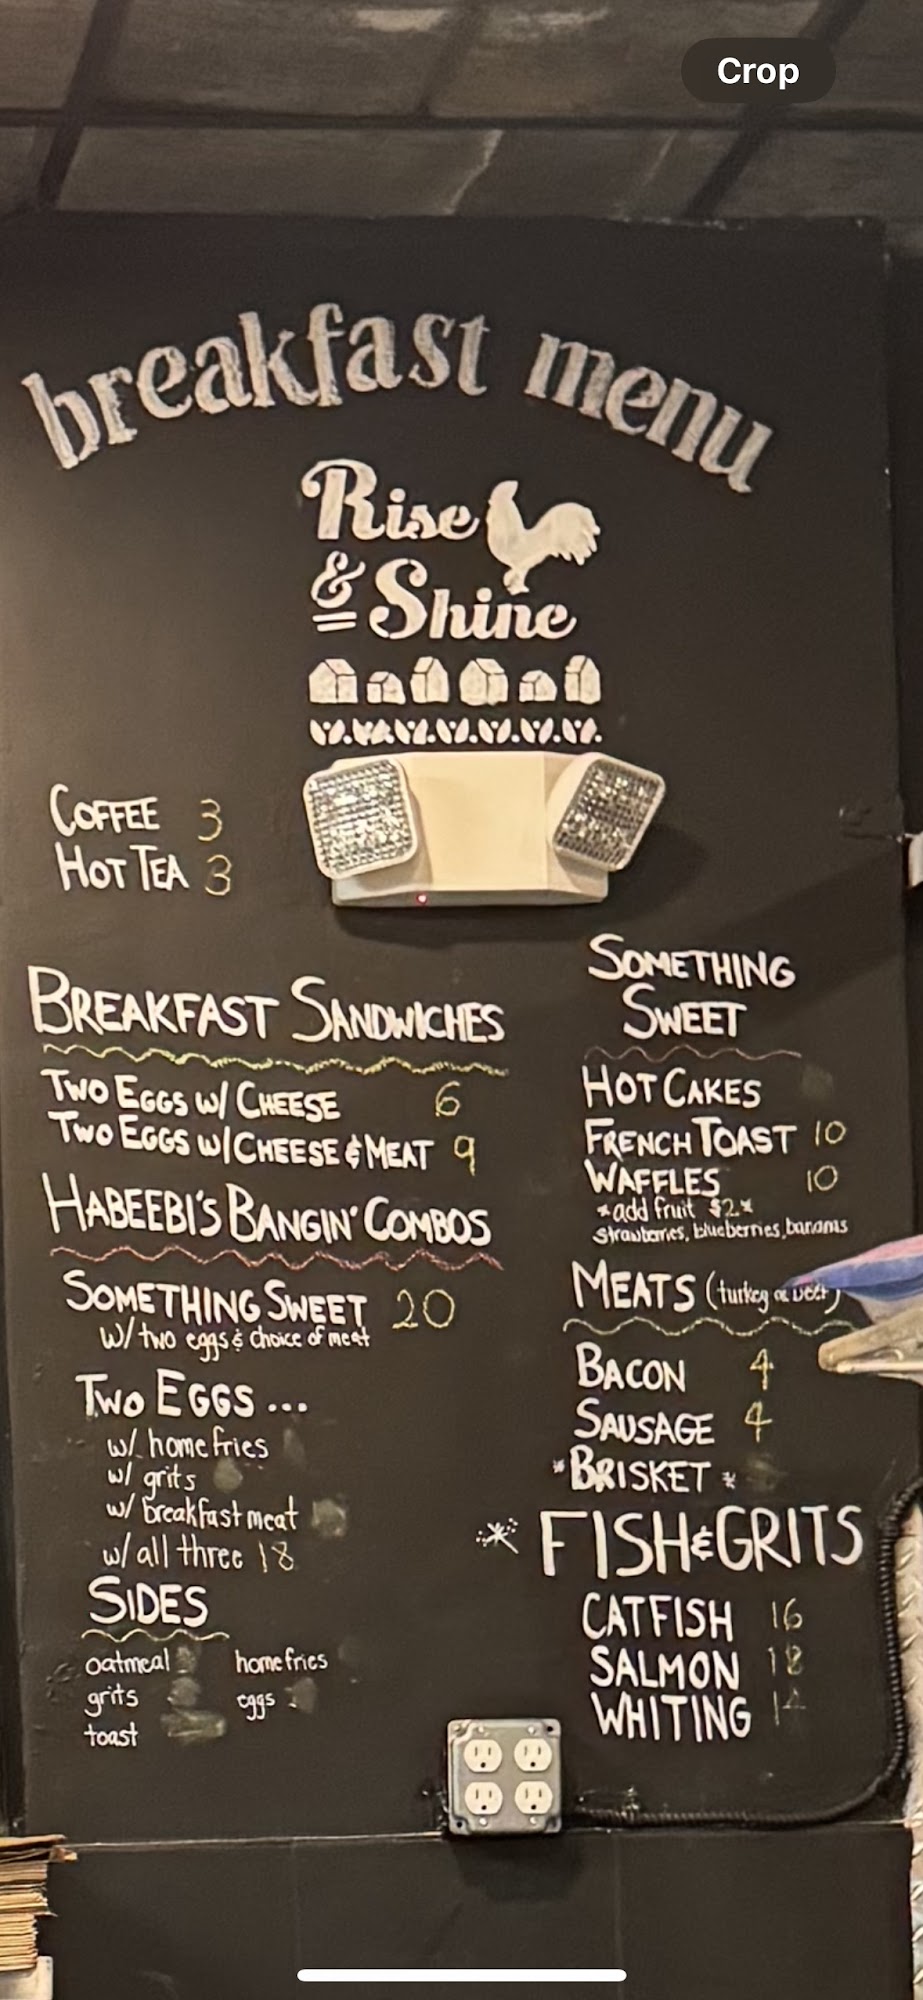 Crop
breakfast menu
Rise
& Shine
COFFEE 3
HOT TEA 3
BREAKFAST SANDWICHES
TWO EGGS W/ CHEESE 6
TWO EGGS W/ CHEESE & MEAT 9
HABEEBI'S BANGIN' COMBOS
SOMETHING SWEET 20
w/ two eggs & choice of meat
TWO EGGS ...
w/ home fries
w/ grits
w/ breakfast meat
w/ all three 18
SIDES
oatmeal home fries
grits eggs
toast
SOMETHING
SWEET
HOT CAKES
FRENCH TOAST 10
WAFFLES 10
*add fruit $2*
strawberries, blueberries, bananas
MEATS (turkey or beef)
BACON 4
SAUSAGE 4
*BRISKET*
* FISH & GRITS
CATFISH 16
SALMON 18
WHITING 14